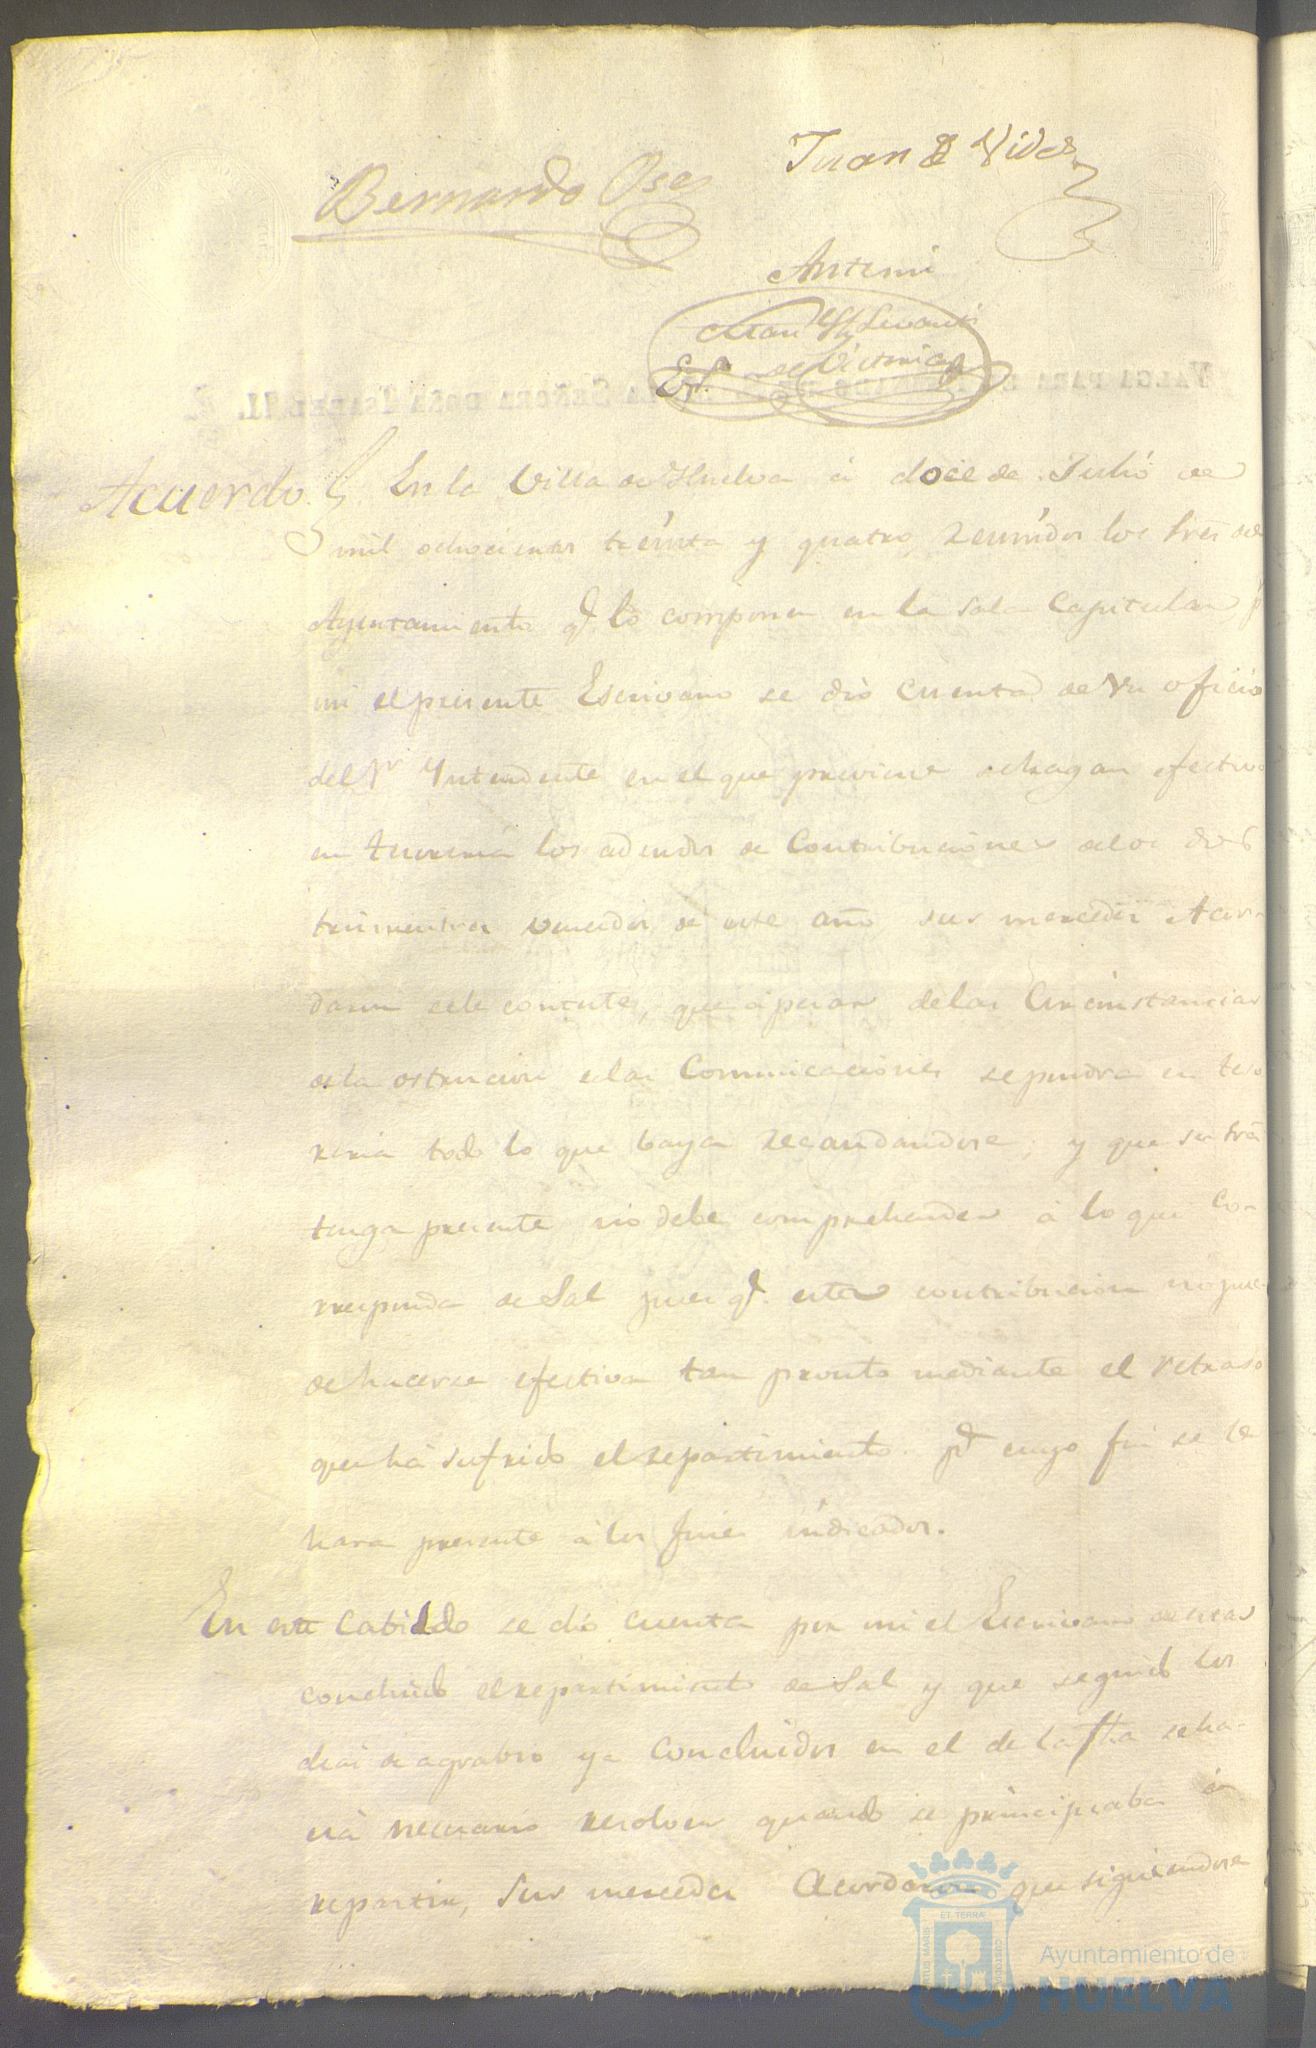 Juan B. Vides
Bernardo Oses
Antemi
Juan
de Victoria
Esc.
VALGA PARA EL REINADO DE LA SEÑORA DOÑA ISABEL II.
Acuerdo. En la Villa de Huelva á doce de Julio de
mil ochocientos treinta y quatro, Reunidos los Sres del
Ayuntamiento q.e lo componen en la Sala Capitular p.r
mi el presente Escrivano se dió cuenta de un oficio
del Sr Yntendente en el que previene se hagan efectivos
en tesoreria los adeudos de Contribuciones de los dos
trimestres vencidos de este año sus mercedes Acor-
daron se le conteste, que á pesar de las Circunstancias
de la ostencion de las Comunicaciones se pondra en teso
reria todo lo que baya Recaudandose; y que su Sria
tenga presente no debe comprehender á lo que Co-
rresponda de Sal pues q.e esta contribucion no pue-
de hacerse efectiva tan pronto mediante el retraso
que há sufrido el repartimiento. p.a cuyo fin se le
hara presente á los fines indicados.
En este Cabildo se dió cuenta por mi el Escrivano de estar
concluido el repartimiento de Sal y que seguido los
dias de agrabio ya Concluidos en el de la fha se ha-
cia necesario resolver quando se principiaba á
repartir, Sus mercedes Acordaron que siguiendose
PORTUS MARIS ET TERRAE CUSTODIA
Ayuntamiento de
HUELVA